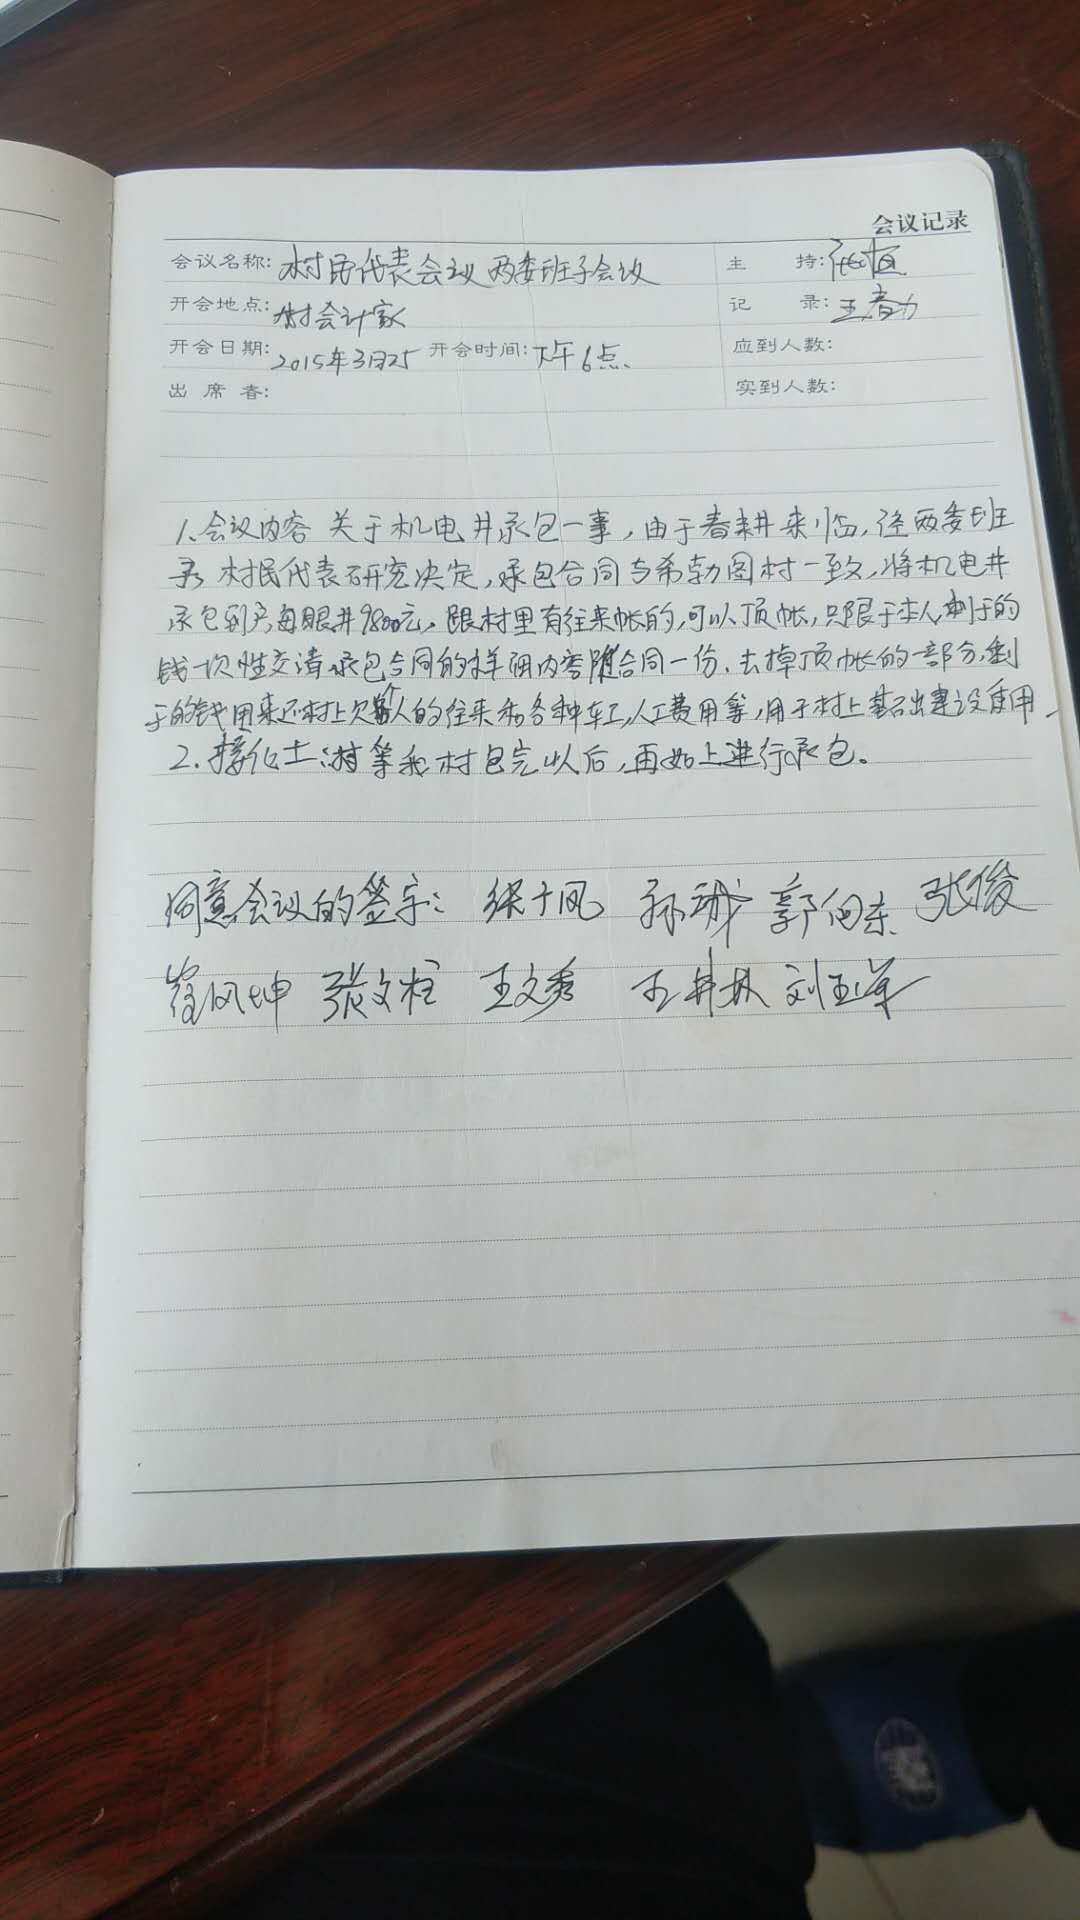 会议记录
会议名称: 村民代表会议 两委班子会议 主 持:
开会地点: 村会计家 记 录: 王春力
开会日期: 2015年3月25 开会时间: 下午6点 应到人数:
出 席 者: 实到人数:
1.会议内容 关于机电井承包一事,由于春耕来临,径两委班
子 村民代表研究决定,承包合同与希勃图村一致,将机电井
承包到户每眼井9800元。跟村里有往来帐的,可以顶帐,只限于本人,剩于的
钱一次性交清.承包合同的详细内容附合同一份.去掉顶帐的一部分,剩
于的钱用来还村上欠个人的往来和各种车工,人工费用等,用于村上基础建设使用
2. 等和村包完以后,再如上进行承包。
同意会议的签字: 张于凤 孙 郭向东 张俊
崔凤坤 张文柱 王文秀 王井林 刘玉军